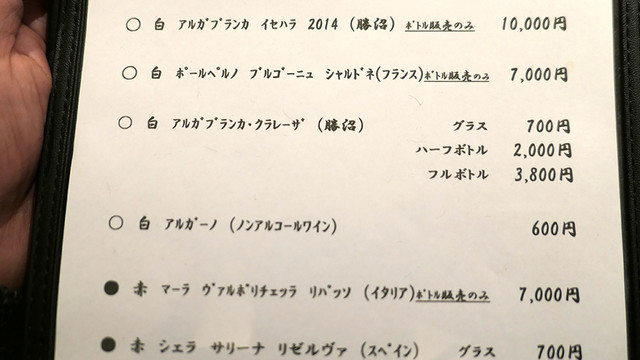 ○ 白 アルガブランカ イセハラ 2014 (勝沼) ボトル販売のみ 10,000円
○ 白 ポールペルノ ブルゴーニュ シャルドネ(フランス)ボトル販売のみ 7,000円
○ 白 アルガブランカ・クラレーザ (勝沼) グラス 700円
ハーフボトル 2,000円
フルボトル 3,800円
○ 白 アルガーノ (ノンアルコールワイン) 600円
● 赤 マーラ ヴァルポリチェッラ リパッソ (イタリア)ボトル販売のみ 7,000円
● 赤 シェラ サリーナ リゼルヴァ (スペイン) グラス 700円